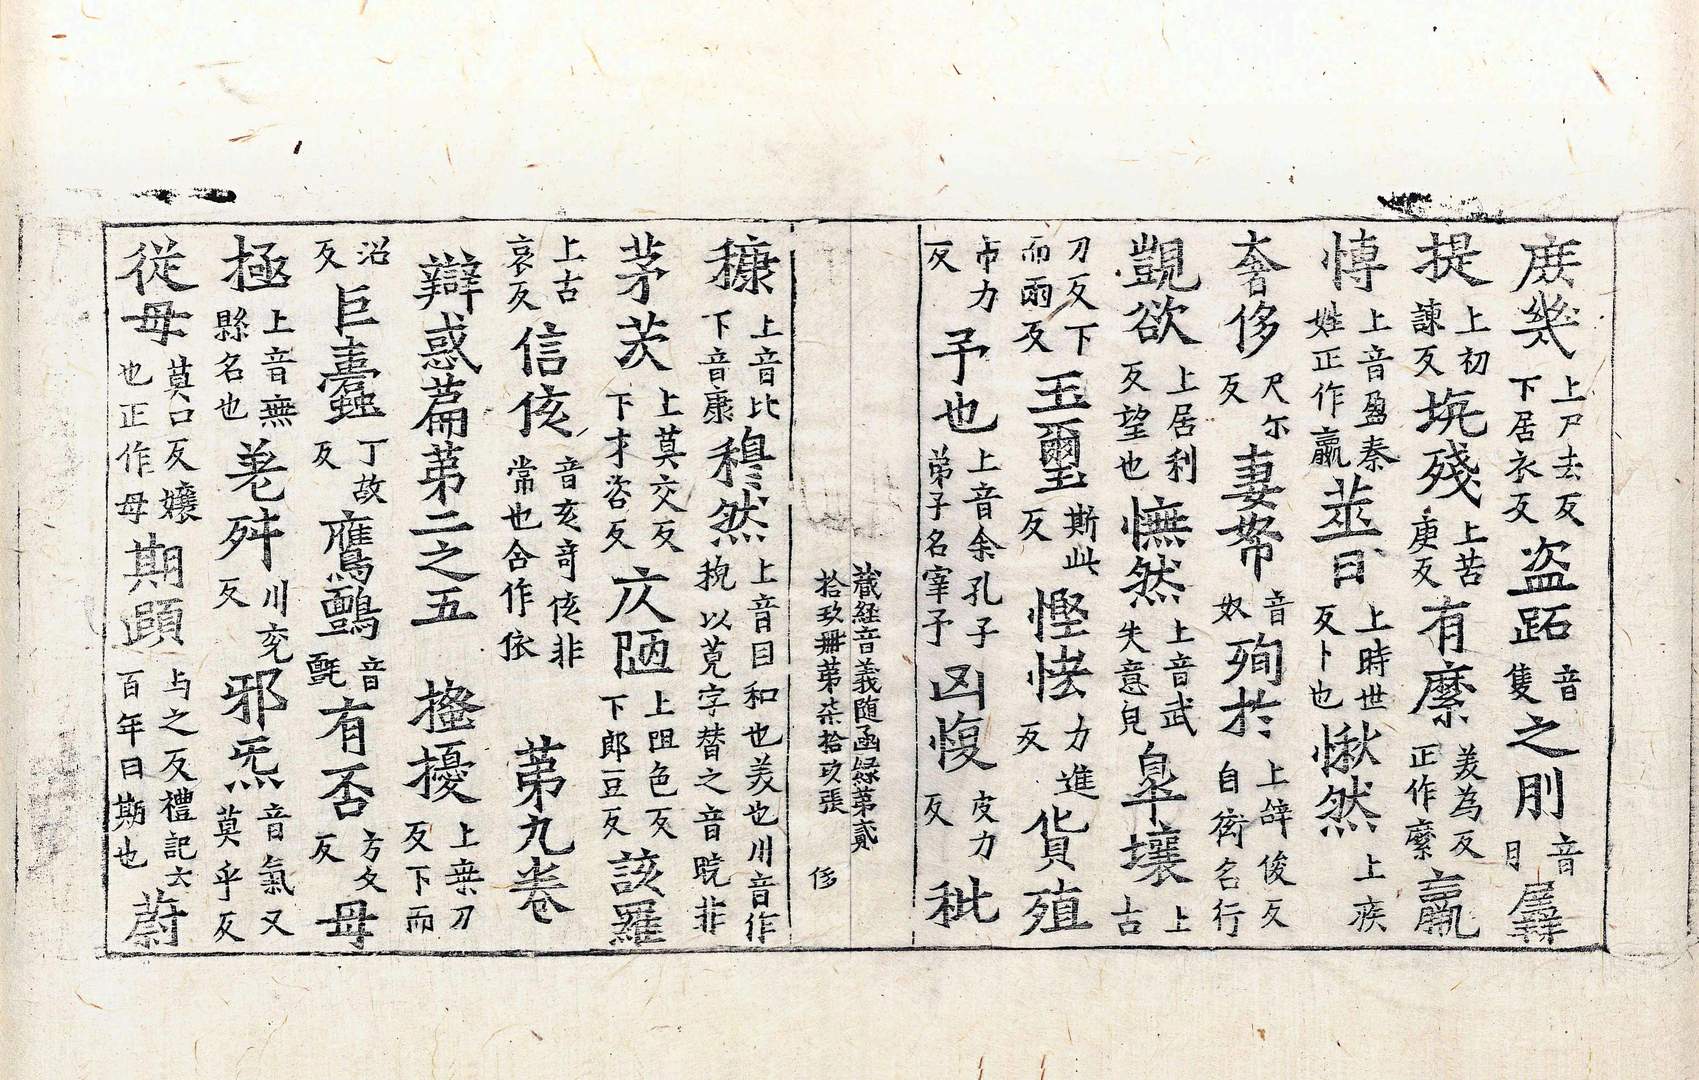 庻幾上尸去反下居衣反盗跖音隻之刖音月羼
提上初諫反坑殘上苦庚反有縻美為反正作縻羸
愽上音盈秦姓正作嬴莁曰上時世反卜也愀然上疾
奢侈尺尔反妻帑音奴殉扵上辝俊反自衒名行
覬欲上居利反望也憮然上音武失意皃皐壤上古
刀反下而兩反玉璽斯此反慳恡力進反貨殖
市力反予也上音余孔子弟子名宰予凶愎皮力反秕
藏経音義随函録第貳拾玖冊苐柒拾玖張 侈
穅上音比下音康穆然上音目和也美也川音作㧥以莧字替之音晥非
茅茨上莫交反下才咨反庂陋上阻色反下郎豆反該羅
上古哀反信侅音亥奇侅非常也合作依苐九卷
辯惑萹苐二之五 擾擾上無刀反下而
沼反巨蠹丁故反鷹鸇音氈有否方久反毋
極上音無縣名也荖舛川兖反邪炁音氣又莫乎反
從毋莫口反孃也正作母期頥与之反禮記六百年曰期也蔚